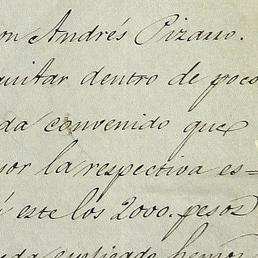 on Andrés Pizano.
quitar dentro de poco
da convenido que
sor la respectiva es=
i este los 2000. pesos